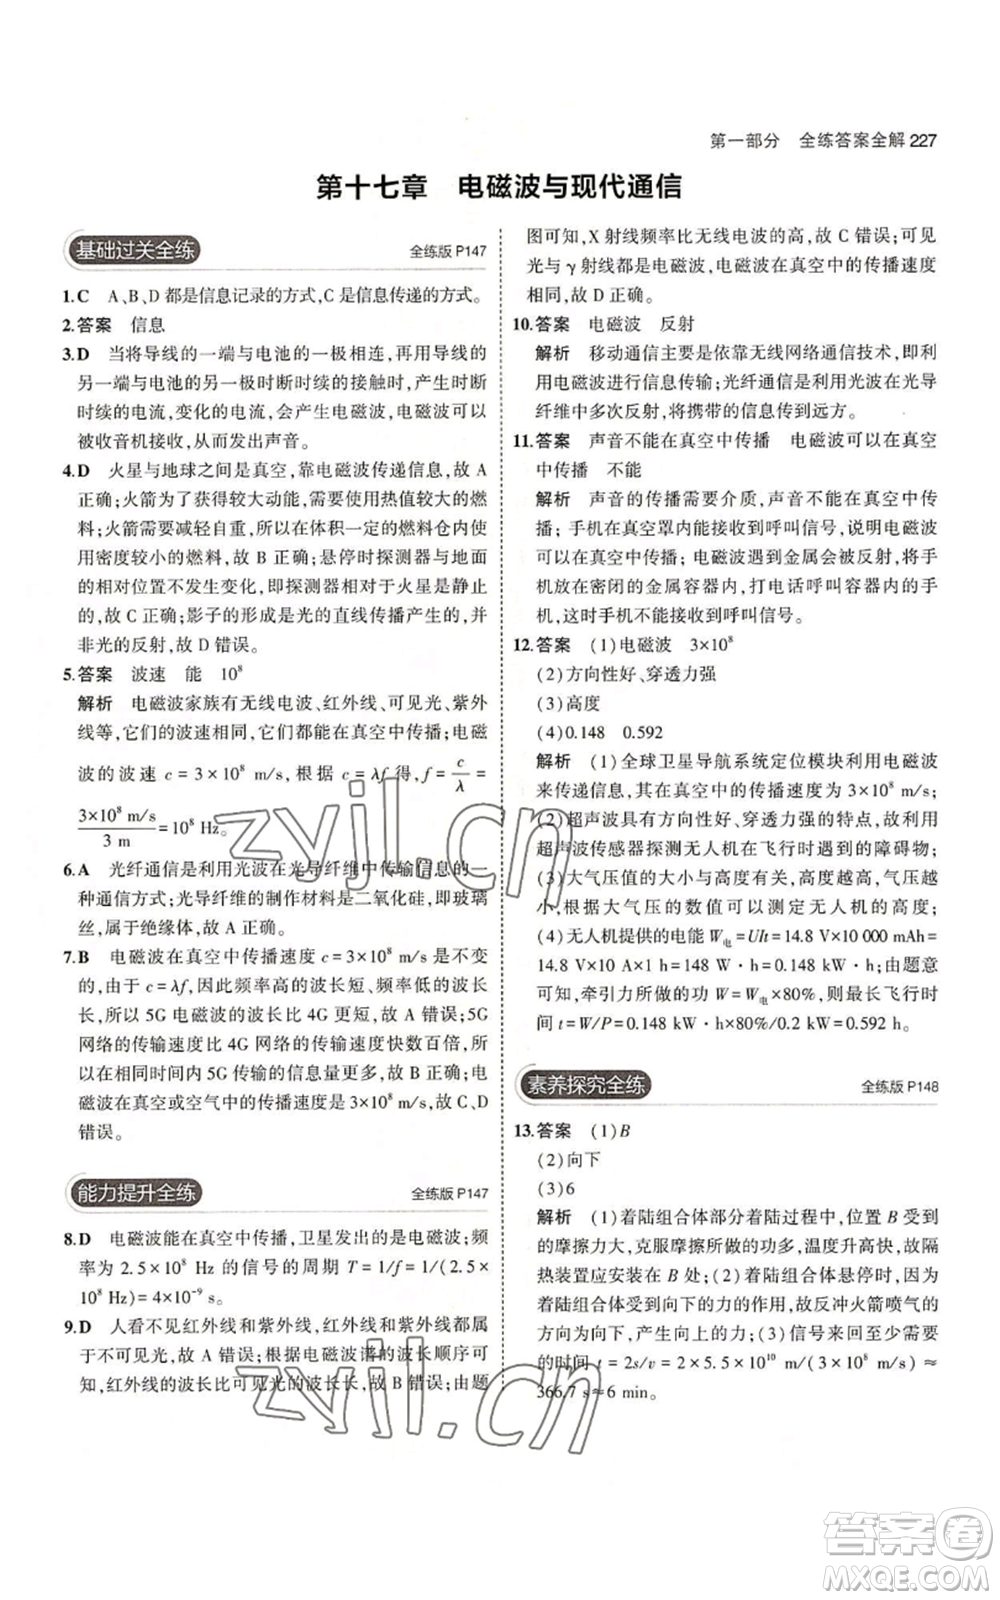 第一部分 全练答案全解 227
第十七章 电磁波与现代通信
基础过关全练 全练版 P147
1.C A、B、D 都是信息记录的方式,C 是信息传递的方式。
2.答案 信息
3.D 当将导线的一端与电池的一极相连,再用导线的
另一端与电池的另一极时断时续的接触时,产生时断
时续的电流,变化的电流,会产生电磁波,电磁波可以
被收音机接收,从而发出声音。
4.D 火星与地球之间是真空,靠电磁波传递信息,故 A
正确;火箭为了获得较大动能,需要使用热值较大的燃
料;火箭需要减轻自重,所以在体积一定的燃料仓内使
用密度较小的燃料,故 B 正确;悬停时探测器与地面
的相对位置不发生变化,即探测器相对于火星是静止
的,故 C 正确;影子的形成是光的直线传播产生的,并
非光的反射,故 D 错误。
5.答案 波速 能 10⁸
解析 电磁波家族有无线电波、红外线、可见光、紫外
线等,它们的波速相同,它们都能在真空中传播;电磁
波的波速 c = 3 × 10⁸ m/s,根据 c = λf 得,f = c/λ =
3×10⁸ m/s / 3 m = 10⁸ Hz。
6.A 光纤通信是利用光波在光导纤维中传输信息的一
种通信方式;光导纤维的制作材料是二氧化硅,即玻璃
丝,属于绝缘体,故 A 正确。
7.B 电磁波在真空中传播速度 c = 3×10⁸ m/s 是不变
的,由于 c = λf,因此频率高的波长短、频率低的波长
长,所以 5G 电磁波的波长比 4G 更短,故 A 错误;5G
网络的传输速度比 4G 网络的传输速度快数百倍,所
以在相同时间内 5G 传输的信息量更多,故 B 正确;电
磁波在真空或空气中的传播速度是一样的,故 C、D
错误。
能力提升全练 全练版 P147
8.D 电磁波能在真空中传播,卫星发出的是电磁波;频
率为 2.5×10⁸ Hz 的信号的周期 T = 1/f = 1/(2.5×
10⁸ Hz) = 4×10⁻⁹ s。
9.D 人看不见红外线和紫外线,红外线和紫外线都属
于不可见光,故 A 错误;根据电磁波谱的波长顺序可
知,红外线的波长比可见光的波长长,故 B 错误;由题
图可知,X 射线频率比无线电波的高,故 C 错误;可见
光与 γ 射线都是电磁波,电磁波在真空中的传播速度
相同,故 D 正确。
10.答案 电磁波 反射
解析 移动通信主要是依靠无线网络通信技术,即利
用电磁波进行信息传输;光纤通信是利用光波在光导
纤维中多次反射,将携带的信息传到远方。
11.答案 声音不能在真空中传播 电磁波可以在真空
中传播 不能
解析 声音的传播需要介质,声音不能在真空中传
播;手机在真空罩内能接收到呼叫信号,说明电磁波
可以在真空中传播;电磁波遇到金属会被反射,将手
机放在密闭的金属容器内,打电话呼叫容器内的手
机,这时手机不能接收到呼叫信号。
12.答案 (1)电磁波 3×10⁸
(2)方向性好、穿透力强
(3)高度
(4)0.148 0.592
解析 (1)全球卫星导航系统定位模块利用电磁波
来传递信息,其在真空中的传播速度为 3×10⁸ m/s;
(2)超声波具有方向性好、穿透力强的特点,故利用
超声波传感器探测无人机在飞行时遇到的障碍物;
(3)大气压值的大小与高度有关,高度越高,气压越
低,根据大气压的数值可以测定无人机的高度;
(4)无人机提供的电能 W电 = UIt = 14.8 V×10 000 mAh =
14.8 V×10 A×1 h = 148 W·h = 0.148 kW·h;由题意
可知,牵引力所做的功 W = W电×80%,则最长飞行时
间 t = W/P = 0.148 kW·h×80%/0.2 kW = 0.592 h。
素养探究全练 全练版 P148
13.答案 (1)B
(2)向下
(3)6
解析 (1)着陆组合体部分着陆过程中,位置 B 受到
的摩擦力大,克服摩擦所做的功多,温度升高快,故隔
热装置应安装在 B 处;(2)着陆组合体悬停时,因为
着陆组合体受到向下的力的作用,故反冲火箭喷气的
方向为向下,产生向上的力;(3)信号来回至少需要
的时间 t = 2s/v = 2×5.5×10¹⁰ m/(3×10⁸ m/s) ≈
366.7 s≈6 min。
zyjl.cn
zyjl.cn
答案卷
MXQE.COM